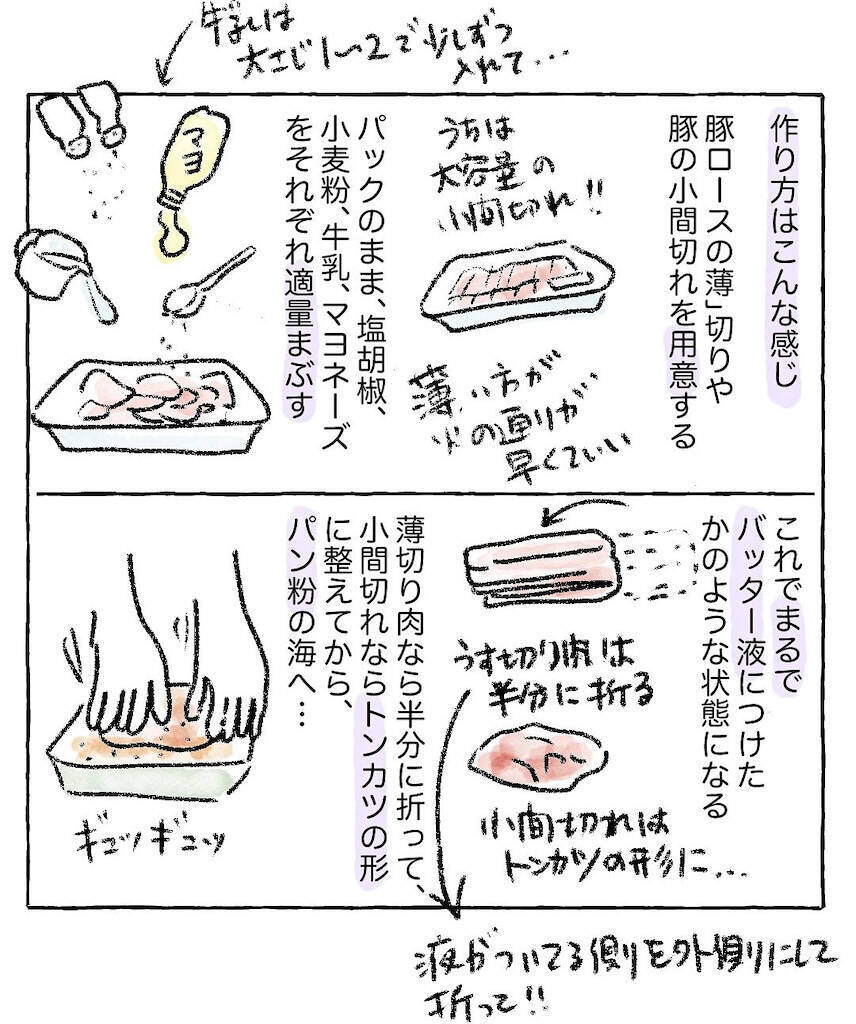 牛乳は
大さじ1〜2で少しずつ
入れて…
作り方はこんな感じ
豚ロースの薄」切りや
豚の小間切れを用意する
うちは
大容量の
小間切れ!!
薄い方が
火の通りが
早くていい
パックのまま、塩胡椒、
小麦粉、牛乳、マヨネーズ
をそれぞれ適量まぶす
マヨ
これでまるで
バッター液につけた
かのような状態になる
うす切り肉は
半分に折る
小間切れは
トンカツの形に…
薄切り肉なら半分に折って、
小間切れならトンカツの形
に整えてから、
パン粉の海へ…
ギュッギュッ
液がついてる側を外側にして
折って!!